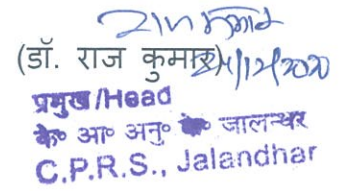 राज कुमार
(डॉ. राज कुमार) 24/12/2020
प्रमुख/Head
के० आ० अनु० के० जालन्धर
C.P.R.S., Jalandhar